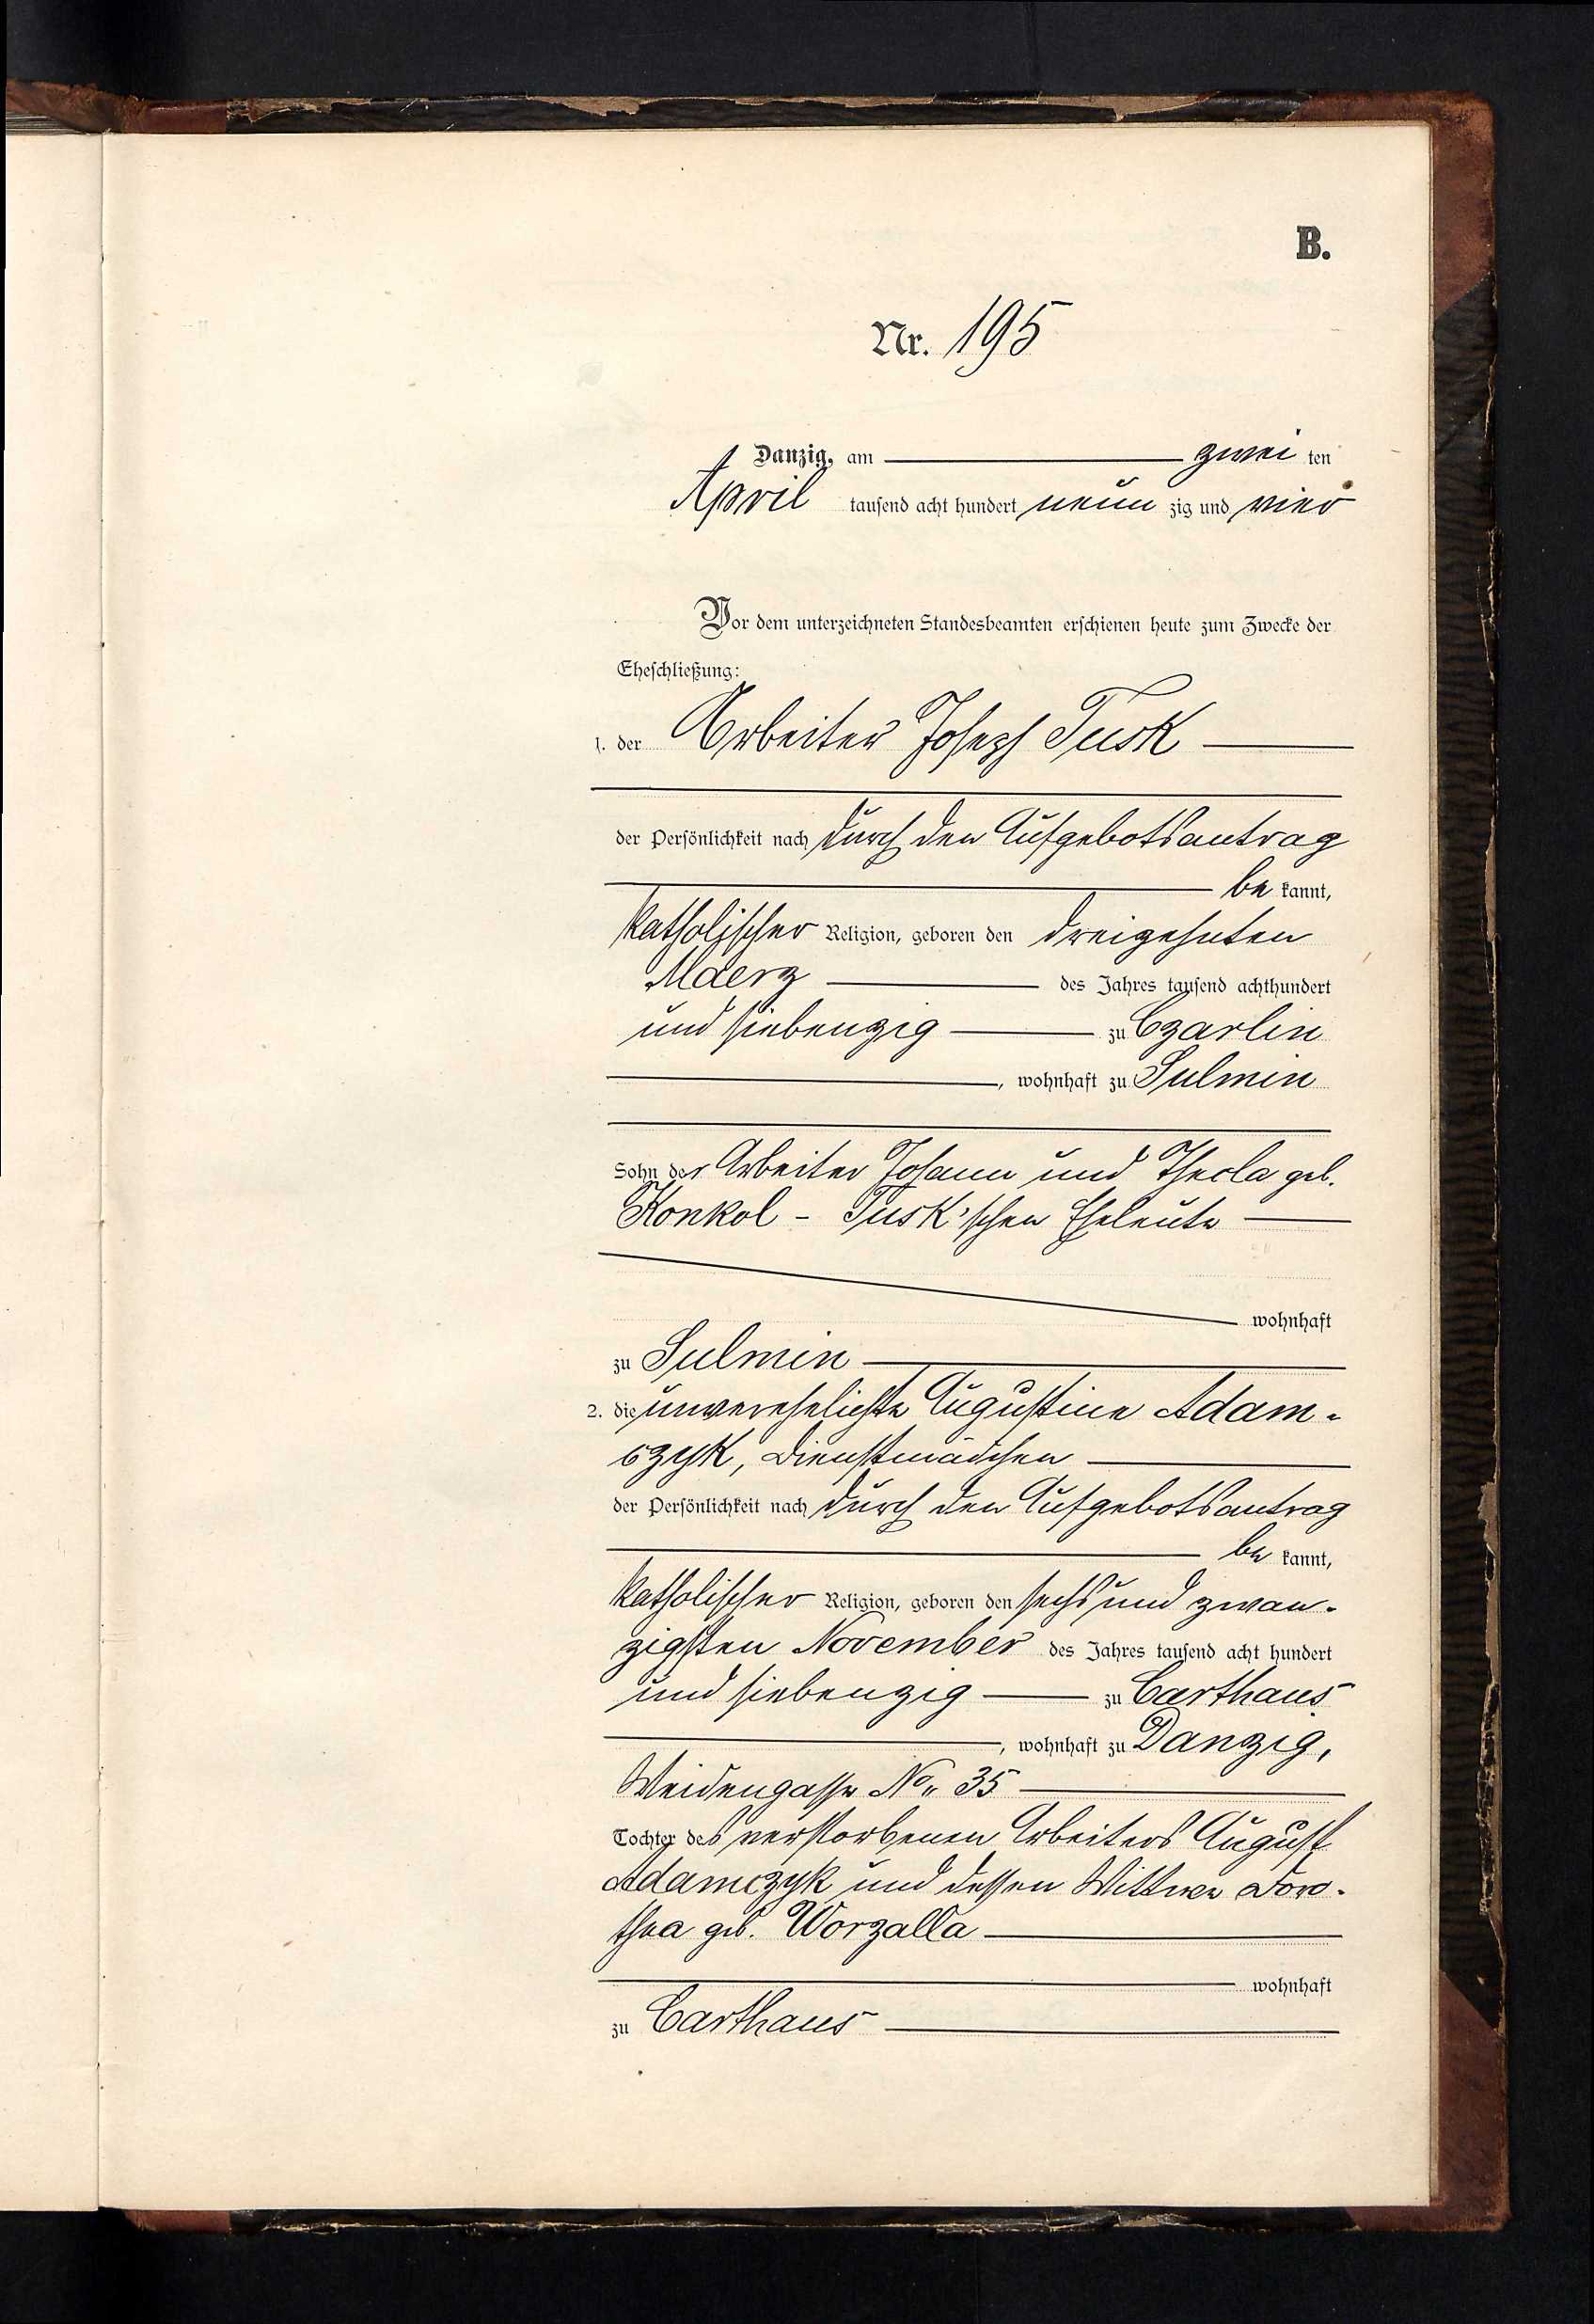 B.
Nr. 195
Danzig, am zwei ten
April tausend acht hundert neun zig und vier
Vor dem unterzeichneten Standesbeamten erschienen heute zum Zwecke der
Eheschließung:
1. der Arbeiter Joseph Tusk
der Persönlichkeit nach durch den Aufgebotsantrag
be kannt,
katholischer Religion, geboren den dreizehnten
Maerz des Jahres tausend achthundert
und siebenzig zu Czarlin
, wohnhaft zu Sulmin
Sohn der Arbeiter Johann und Thecla geb.
Konkol - Tusk'schen Eheleute
wohnhaft
zu Sulmin
2. die unverehelichte Augustine Adam-
czyk, Dienstmädchen
der Persönlichkeit nach durch den Aufgebotsantrag
be kannt,
katholischer Religion, geboren den sechs und zwan-
zigsten November des Jahres tausend acht hundert
und siebenzig zu Carthaus
, wohnhaft zu Danzig,
Weidengasse No. 35
Tochter des verstorbenen Arbeiters August
Adamczyk und dessen Wittwe Doro-
thea geb. Worzalla
wohnhaft
zu Carthaus